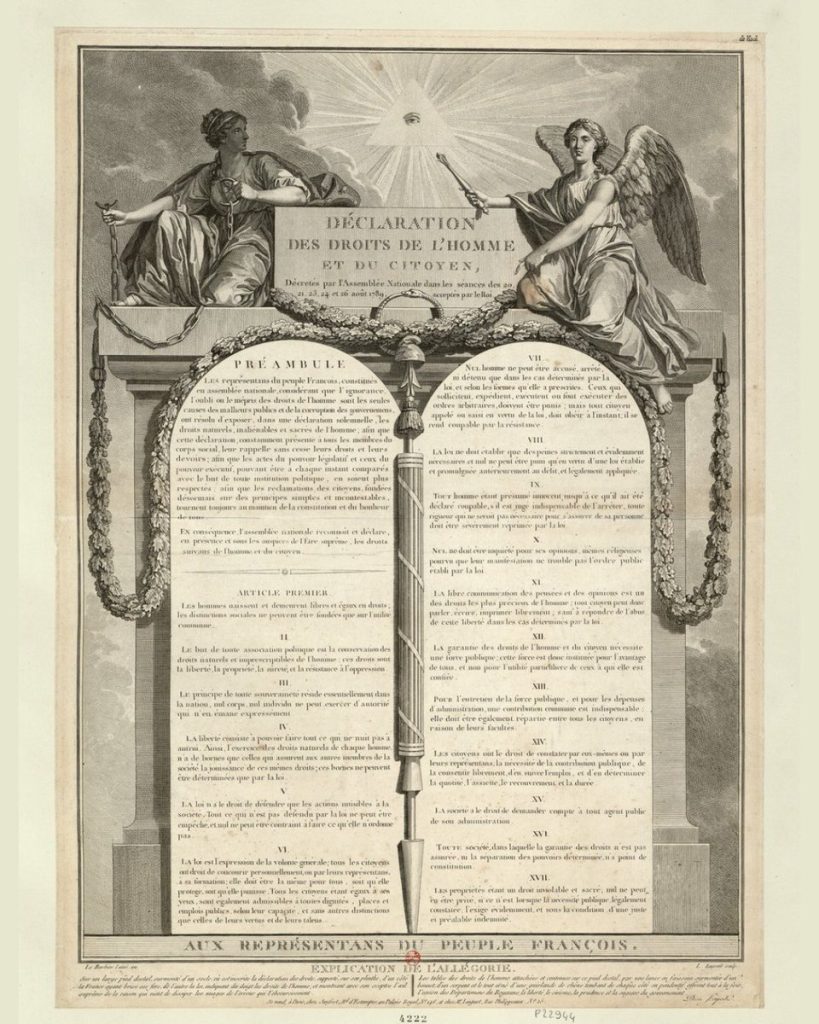 DÉCLARATION
DES DROITS DE L'HOMME
ET DU CITOYEN,
Décretés par l'Assemblée Nationale dans les séances des 20,
21, 23, 24 et 26 août 1789, acceptés par le Roi
PRÉAMBULE
LES représentans du peuple François, constitués
en assemblée nationale, considérant que l'ignorance
l'oubli ou le mépris des droits de l'homme sont les seules
causes des malheurs publics et de la corruption des gouvernemens,
ont résolu d'exposer, dans une déclaration solemnelle, les
droits naturels, inaliénables et sacrés de l'homme; afin que
cette déclaration, constamment présente à tous les membres du
corps social, leur rappelle sans cesse leurs droits et leurs
devoirs; afin que les actes du pouvoir législatif et ceux du
pouvoir exécutif, pouvant être à chaque instant comparés
avec le but de toute institution politique, en soient plus
respectés; afin que les réclamations des citoyens, fondées
désormais sur des principes simples et incontestables,
tournent toujours au maintien de la constitution et du bonheur
de tous.
EN conséquence, l'assemblée nationale reconnoit et déclare,
en présence et sous les auspices de l'Être suprême, les droits
suivans de l'homme et du citoyen.
ARTICLE PREMIER.
LES hommes naissent et demeurent libres et égaux en droits;
les distinctions sociales ne peuvent être fondées que sur l'utilité
commune.
II.
LE but de toute association politique est la conservation des
droits naturels et imprescriptibles de l'homme; ces droits sont
la liberté, la propriété, la sûreté, et la résistance à l'oppression.
III.
LE principe de toute souveraineté réside essentiellement dans
la nation, nul corps, nul individu ne peut exercer d'autorité
qui n'en émane expressément.
IV.
LA liberté consiste à pouvoir faire tout ce qui ne nuit pas à
autrui. Ainsi, l'exercice des droits naturels de chaque homme,
n'a de bornes que celles qui assurent aux autres membres de la
société la jouissance de ces mêmes droits; ces bornes ne peuvent
être déterminées que par la loi.
V.
LA loi n'a le droit de défendre que les actions nuisibles à la
société. Tout ce qui n'est pas défendu par la loi ne peut être
empêché, et nul ne peut être contraint à faire ce qu'elle n'ordonne
pas.
VI.
LA loi est l'expression de la volonté générale; tous les citoyens
ont droit de concourir personnellement, ou par leurs représentans,
à sa formation; elle doit être la même pour tous, soit qu'elle
protege, soit qu'elle punisse. Tous les citoyens étant égaux à ses
yeux, sont également admissibles à toutes dignités, places et
emplois publics, selon leur capacité, et sans autres distinctions
que celles de leurs vertus et de leurs talens.
VII.
NUL homme ne peut être accusé, arrêté,
ni détenu que dans les cas déterminés par la
loi, et selon les formes qu'elle a prescrites. Ceux qui
sollicitent, expédient, exécutent ou font exécuter des
ordres arbitraires, doivent être punis; mais tout citoyen
appelé ou saisi en vertu de la loi, doit obéir à l'instant; il se
rend coupable par la résistance.
VIII.
LA loi ne doit établir que des peines strictement et évidemment
nécessaires et nul ne peut être puni qu'en vertu d'une loi établie
et promulguée antérieurement au délit, et légalement appliquée.
IX.
TOUT homme étant présumé innocent jusqu'à ce qu'il ait été
déclaré coupable, s'il est jugé indispensable de l'arrêter, toute
rigueur qui ne seroit pas nécessaire pour s'assurer de sa personne
doit être sévèrement réprimée par la loi.
X.
NUL ne doit être inquiété pour ses opinions, mêmes religieuses
pourvu que leur manifestation ne trouble pas l'ordre public
établi par la loi.
XI.
LA libre communication des pensées et des opinions est un
des droits les plus précieux de l'homme; tout citoyen peut donc
parler, écrire, imprimer librement; sauf à répondre de l'abus
de cette liberté dans les cas déterminés par la loi.
XII.
LA garantie des droits de l'homme et du citoyen nécessite
une force publique; cette force est donc instituée pour l'avantage
de tous, et non pour l'utilité particulière de ceux à qui elle est
confiée.
XIII.
POUR l'entretien de la force publique, et pour les dépenses
d'administration, une contribution commune est indispensable;
elle doit être également répartie entre tous les citoyens, en
raison de leurs facultés.
XIV.
LES citoyens ont le droit de constater par eux-mêmes ou par
leurs représentans, la nécessité de la contribution publique, de
la consentir librement, d'en suivre l'emploi, et d'en déterminer
la quotité, l'assiette, le recouvrement, et la durée.
XV.
LA société a le droit de demander compte à tout agent public
de son administration.
XVI.
TOUTE société, dans laquelle la garantie des droits n'est pas
assurée, ni la séparation des pouvoirs déterminée, n'a point de
constitution.
XVII.
LES propriétés étant un droit inviolable et sacré, nul ne peut
en être privé, si ce n'est lorsque la nécessité publique, légalement
constatée, l'exige évidemment, et sous la condition d'une juste
et préalable indemnité.
AUX REPRÉSENTANS DU PEUPLE FRANÇOIS.
Le Barbier l'ainé inv.
L. Laurent sculp.
EXPLICATION DE L'ALLÉGORIE.
4222
P22944